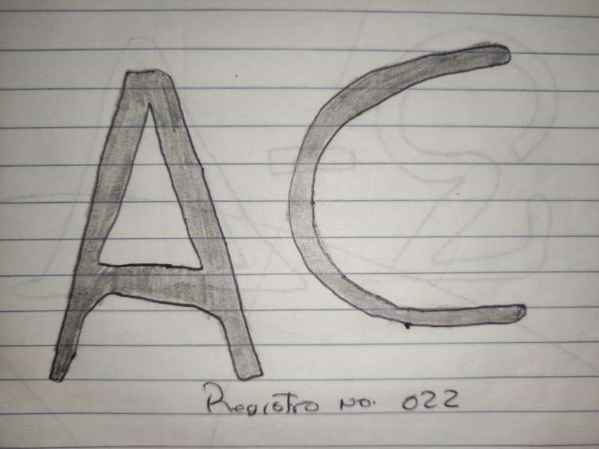 AC
Registro No. 022